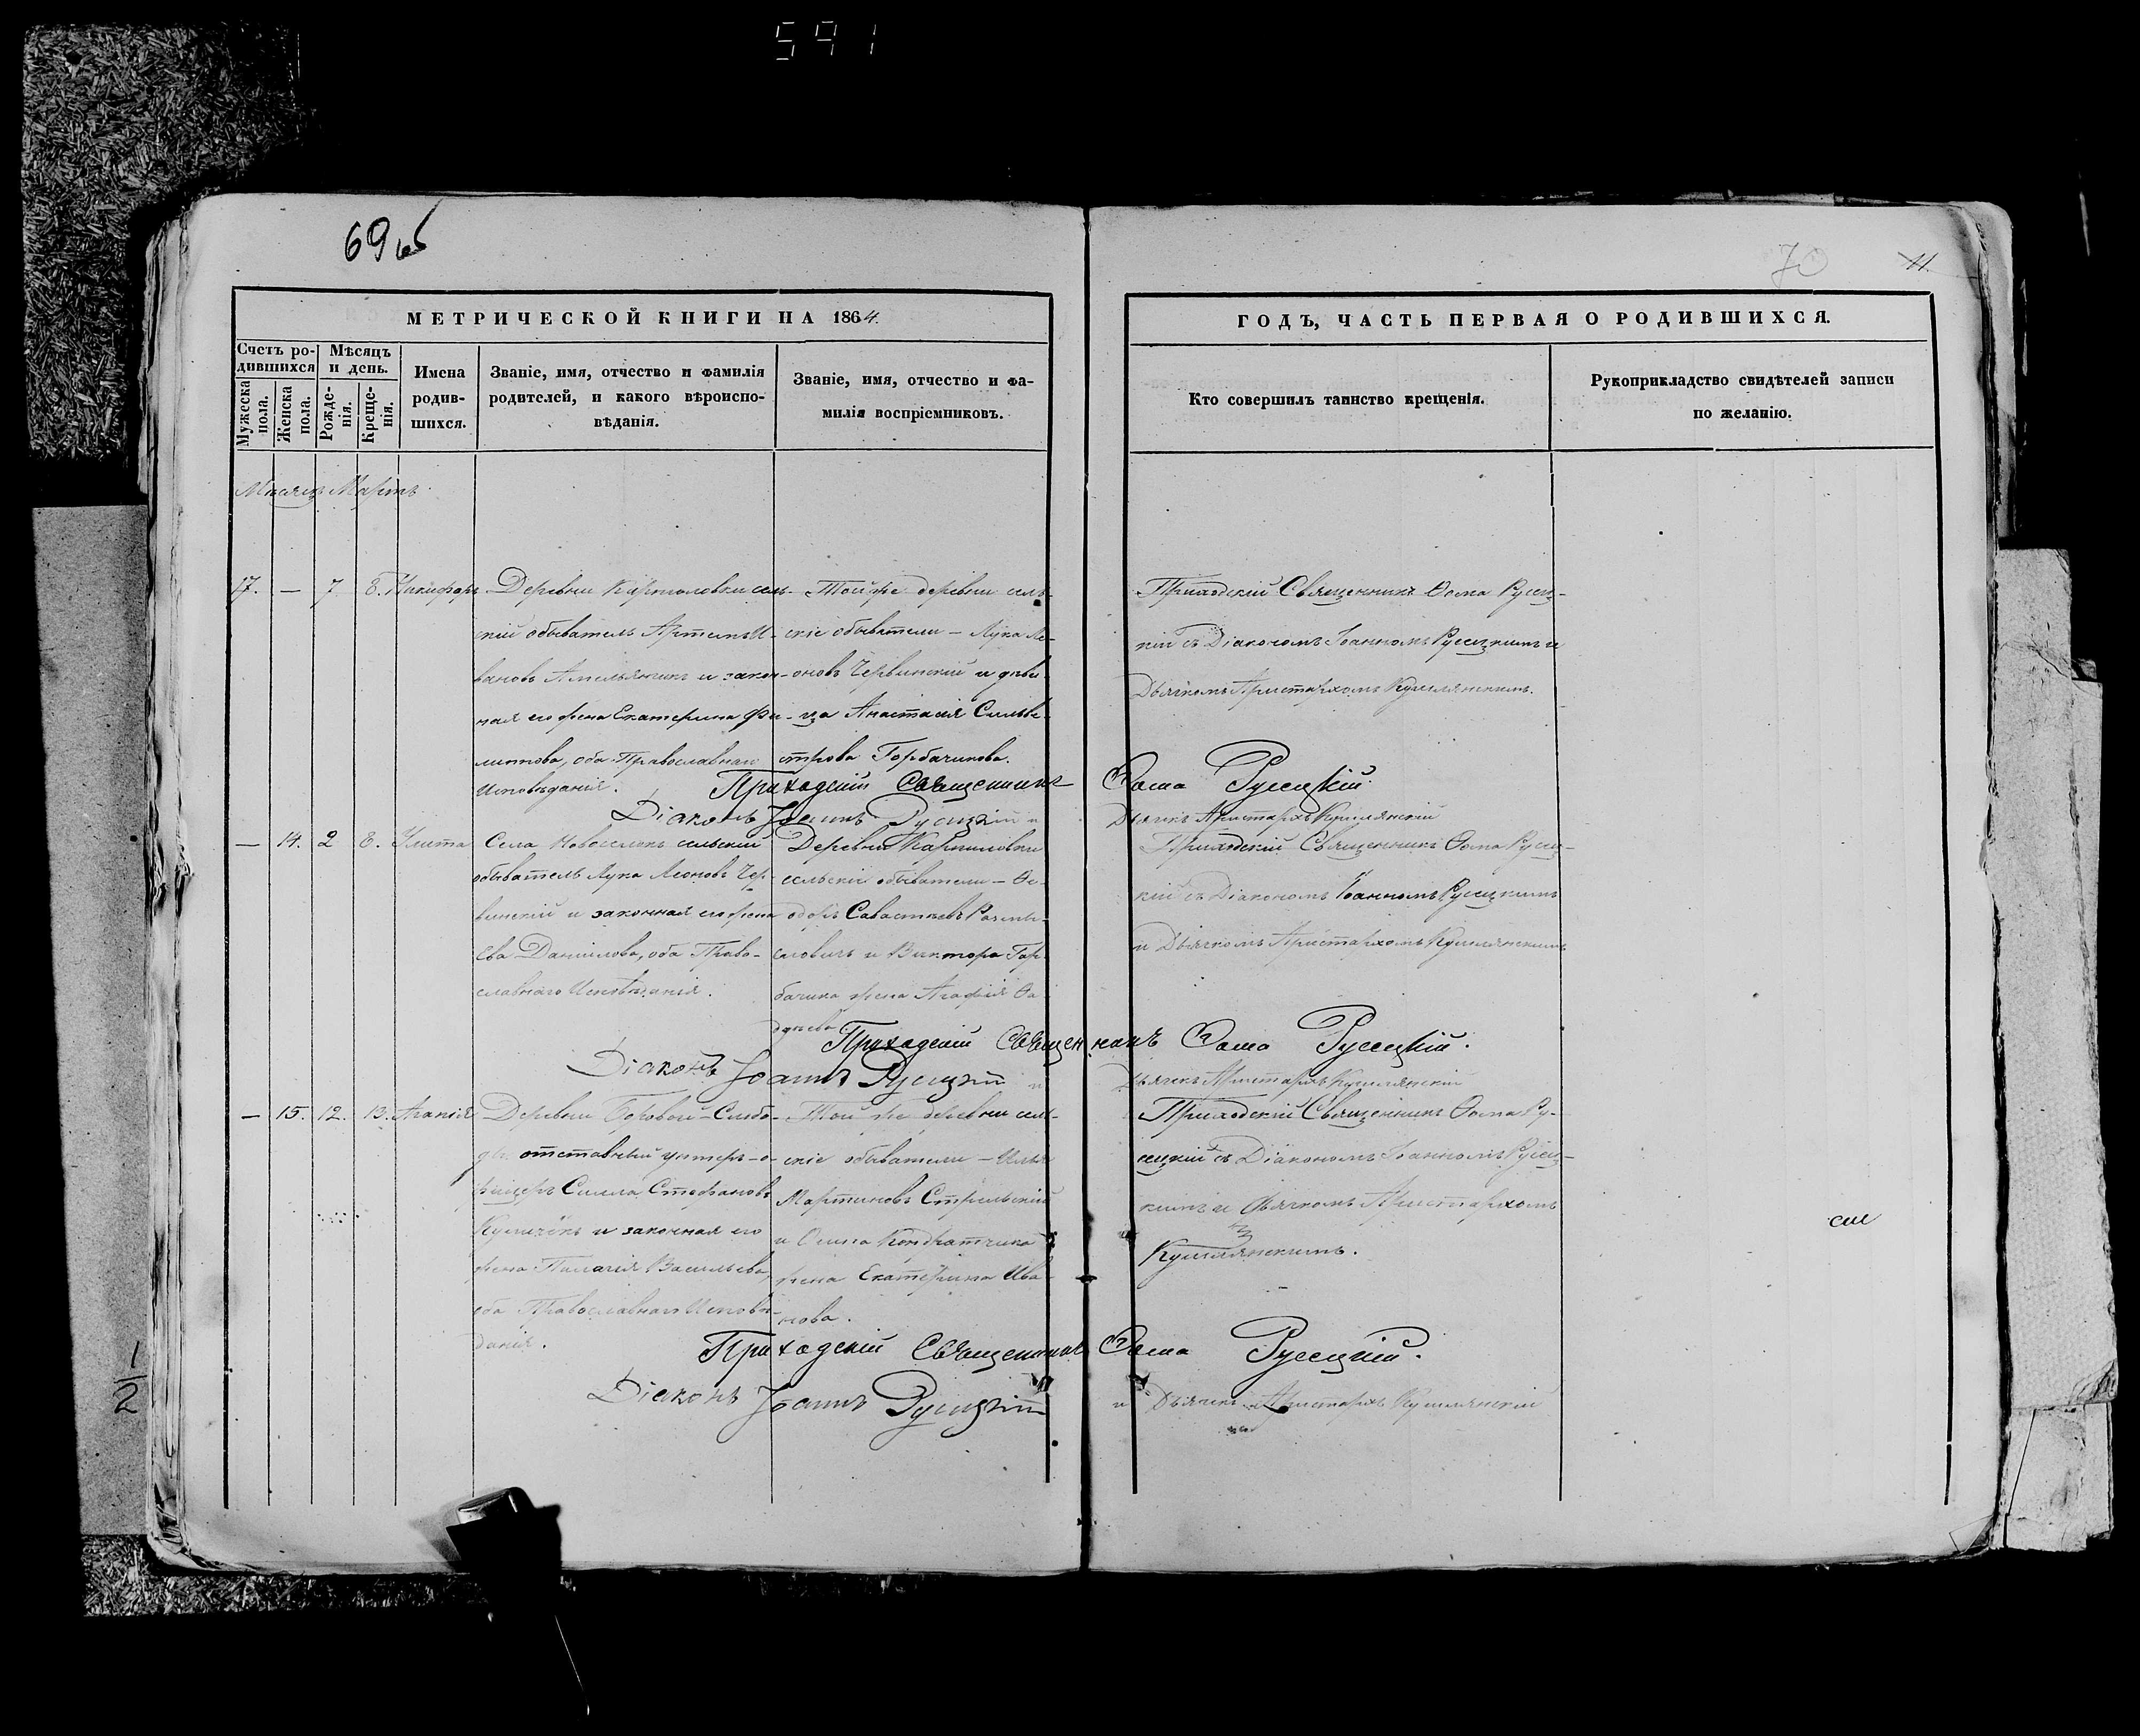 591
69 об
70
11.
МЕТРИЧЕСКОЙ КНИГИ НА 1864.
ГОДЪ, ЧАСТЬ ПЕРВАЯ О РОДИВШИХСЯ.
Счетъ ро-
дившихся
Мужеска
пола.
Женска
пола.
Мѣсяцъ
и день.
Рожде-
нія.
Креще-
нія.
Имена
родив-
шихся.
Званіе, имя, отчество и фамилія
родителей, и какого вѣроиспо-
вѣданія.
Званіе, имя, отчество и фа-
милія воспріемниковъ.
Кто совершилъ таинство крещенія.
Рукоприкладство свидѣтелей записи
по желанію.
Мѣсяцъ Мартъ
17. — 7. 8. Никифоръ
Деревни Карпиловки сель-
скій обыватель Артемъ И-
вановъ Амельянчикъ и закон-
ная его жена Екатерина Фи-
липпова, оба Православнаго
Исповѣданія.
Той же деревни сель-
скіе обыватели — Лука Ле-
оновъ Червинскій и дѣви-
ца Анастасія Сильве-
строва Горбачикова.
Приходскій Священникъ Ѳома Русец-
кій съ Діакономъ Іоанномъ Русецкимъ и
Дьячкомъ Аристархомъ Кушлянскимъ.
Приходскій Священникъ Ѳома Русецкій.
Діаконъ Іоаннъ Русецкій и
Дьячекъ Аристархъ Кушлянскій
— 14. 2 8. Улита
Села Новоселокъ сельскій
обыватель Лука Леоновъ Чер-
винскій и законная его жена
Ева Данилова, оба Право-
славнаго Исповѣданія.
Деревни Карпиловки
сельскіе обыватели — Ѳе-
одоръ Савастіевъ
и Виктора Гор-
бачика жена Агафія Ѳа-
дѣева.
Приходскій Священникъ Ѳома Русец-
кій съ Діакономъ Іоанномъ Русецкимъ
и Дьячкомъ Аристархомъ Кушлянскимъ
Приходскій Священникъ Ѳома Русецкій.
Діаконъ Іоаннъ Русецкій и
Дьячекъ Аристархъ Кушлянскій
— 15. 12. 13. Агапія
Деревни Боровой-Слобо-
ды отставный унтеръ-о-
фицеръ Силла Стефановъ
и законная его
жена Пелагія Васильева,
оба Православнаго Исповѣ-
данія.
Той же деревни сель-
скіе обыватели — Илья
Мартиновъ Стрѣльскій
и Осипа Кондратчика
жена Екатерина Ива-
нова.
Приходскій Священникъ Ѳома Ру-
сецкій съ Діакономъ Іоанномъ Русец-
кимъ и Дьячкомъ Аристархомъ
Кушлянскимъ.
Приходскій Священникъ Ѳома Русецкій.
Діаконъ Іоаннъ Русецкій
и Дьячекъ Аристархъ Кушлянскій
1/2